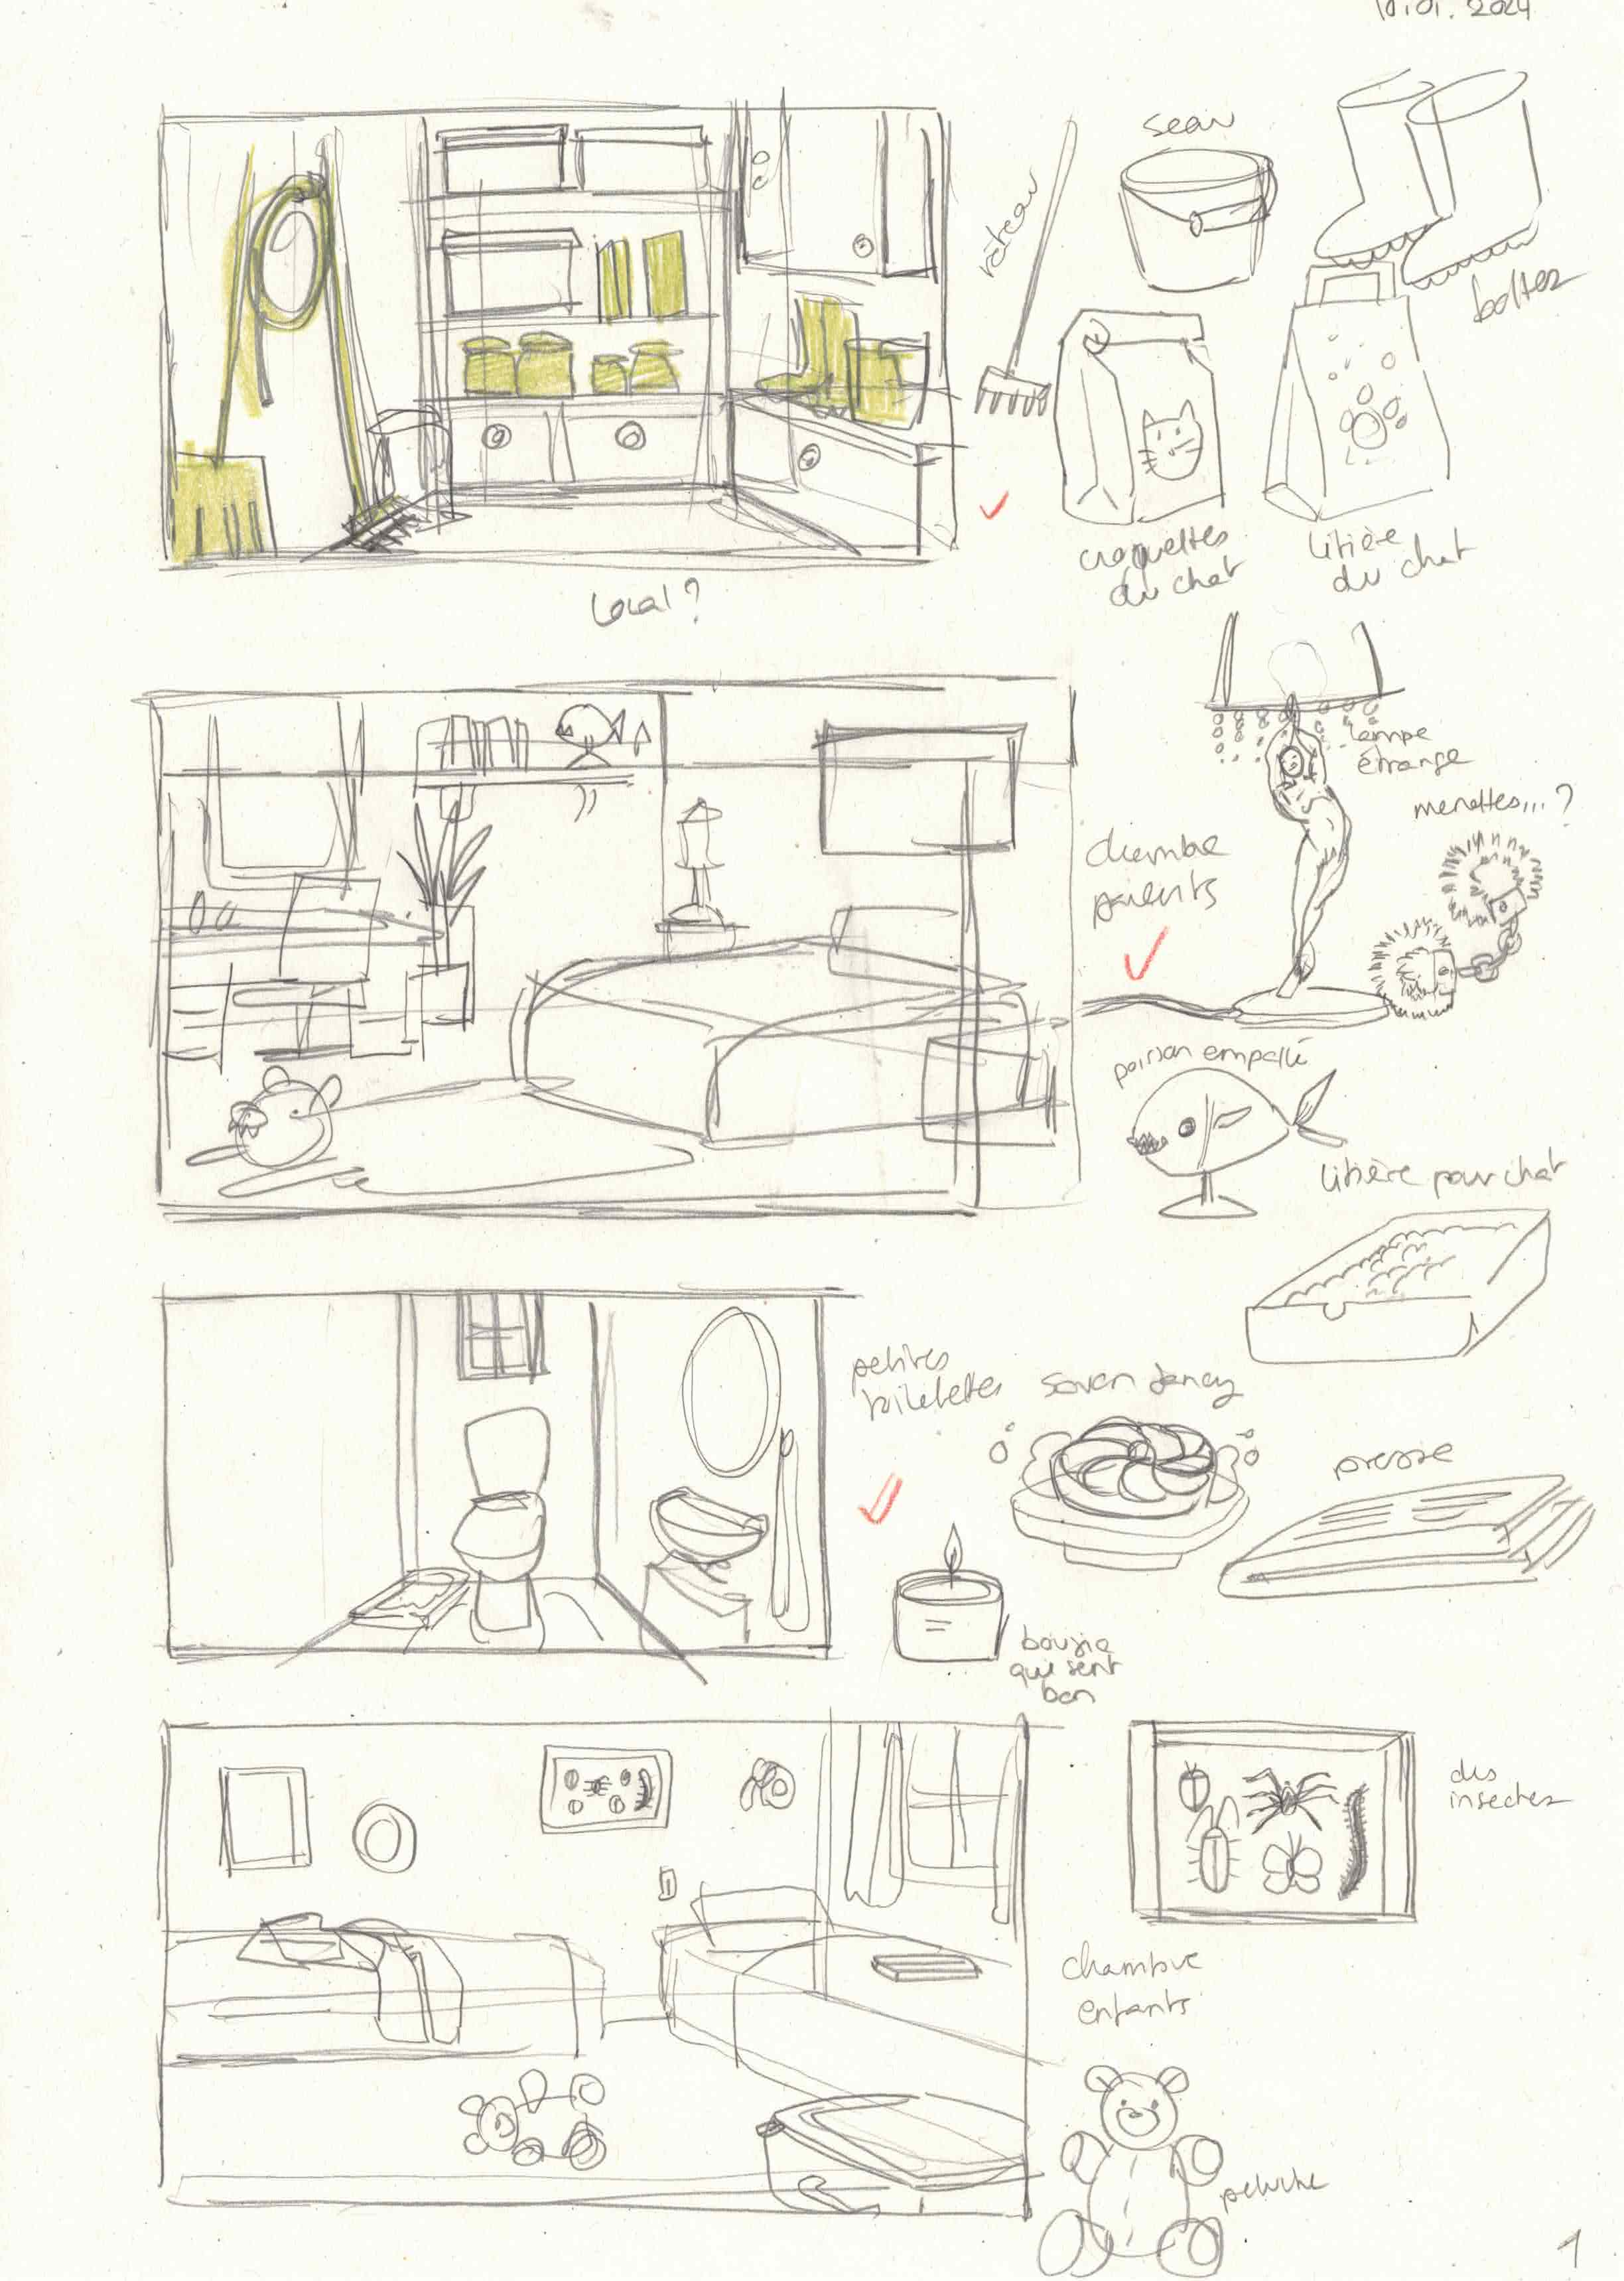 10.01.2024
seau
râteau
bottes
croquettes
du chat
litière
du chat
Local?
lampe
étrange
menottes...?
chambre
parents
poisson empaillé
litière pour chat
petites
toilettes
savon fancy
presse
bougie
qui sent
bon
des
insectes
chambre
enfants
peluche
1